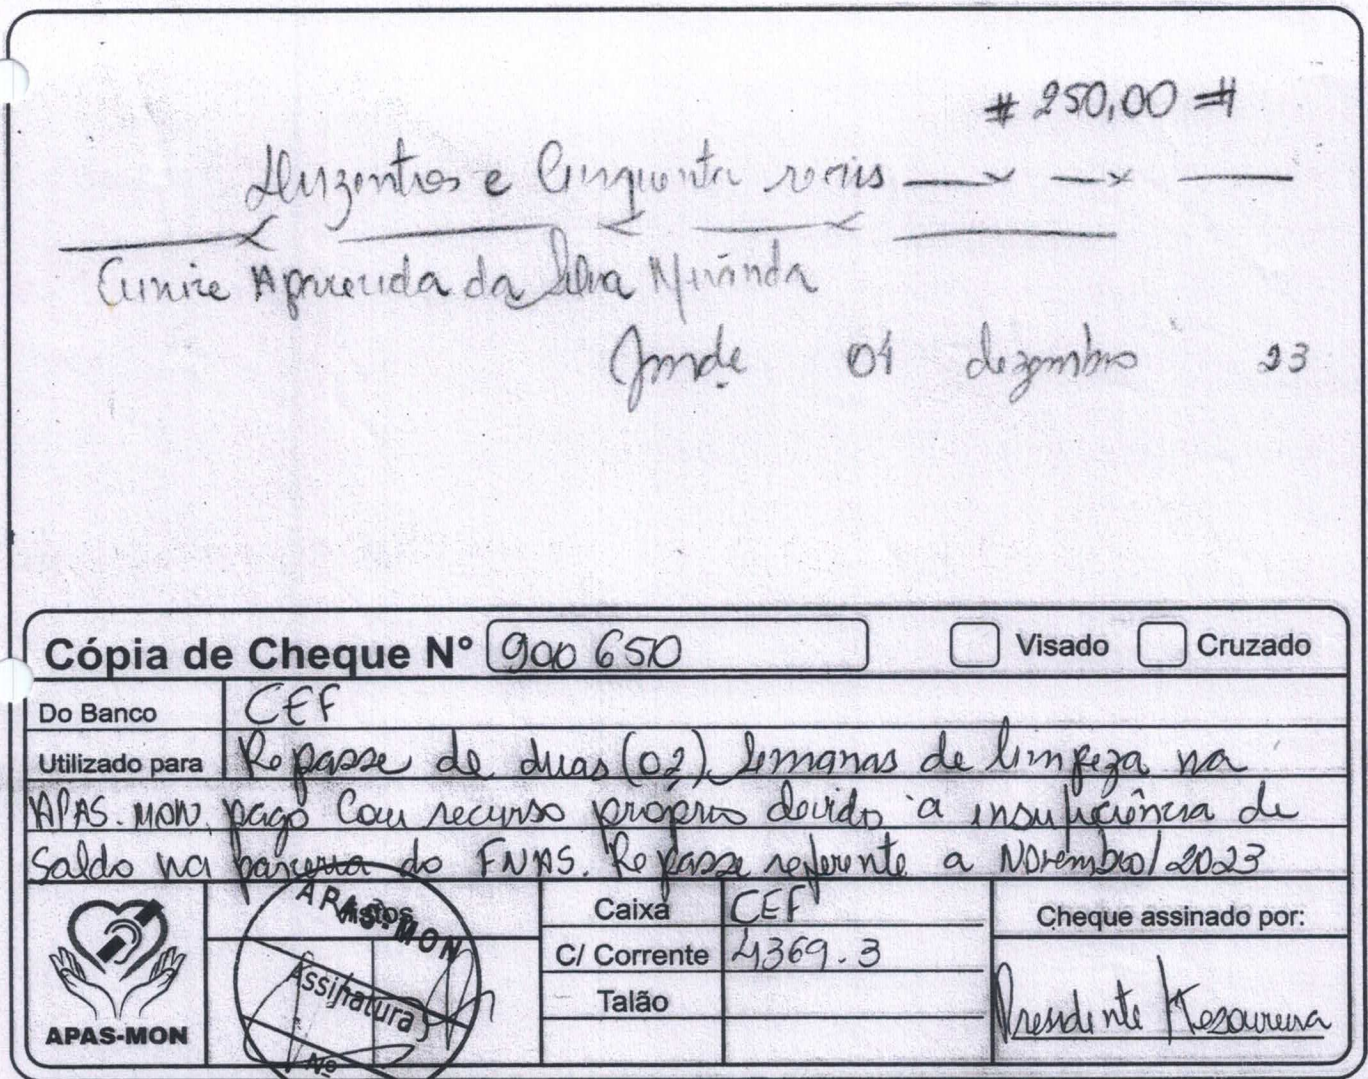 # 250,00 #
Duzentos e Cinquenta reais
Eunice Aparecida da Silva Miranda
04 dezembro 23
Cópia de Cheque Nº 900650
Visado
Cruzado
Do Banco CEF
Utilizado para Repasse de duas (02) Semanas de limpeza na
APAS.MON. pago Com recurso próprio devido a insuficiência de
Saldo na parceria do FNAS. Repasse referente a Novembro/2023
APAS-MON
APAS-MON
Assinatura
Nº
Vistos
Caixa CEF
C/ Corrente 4369.3
Talão
Cheque assinado por:
Presidente Tesoureira